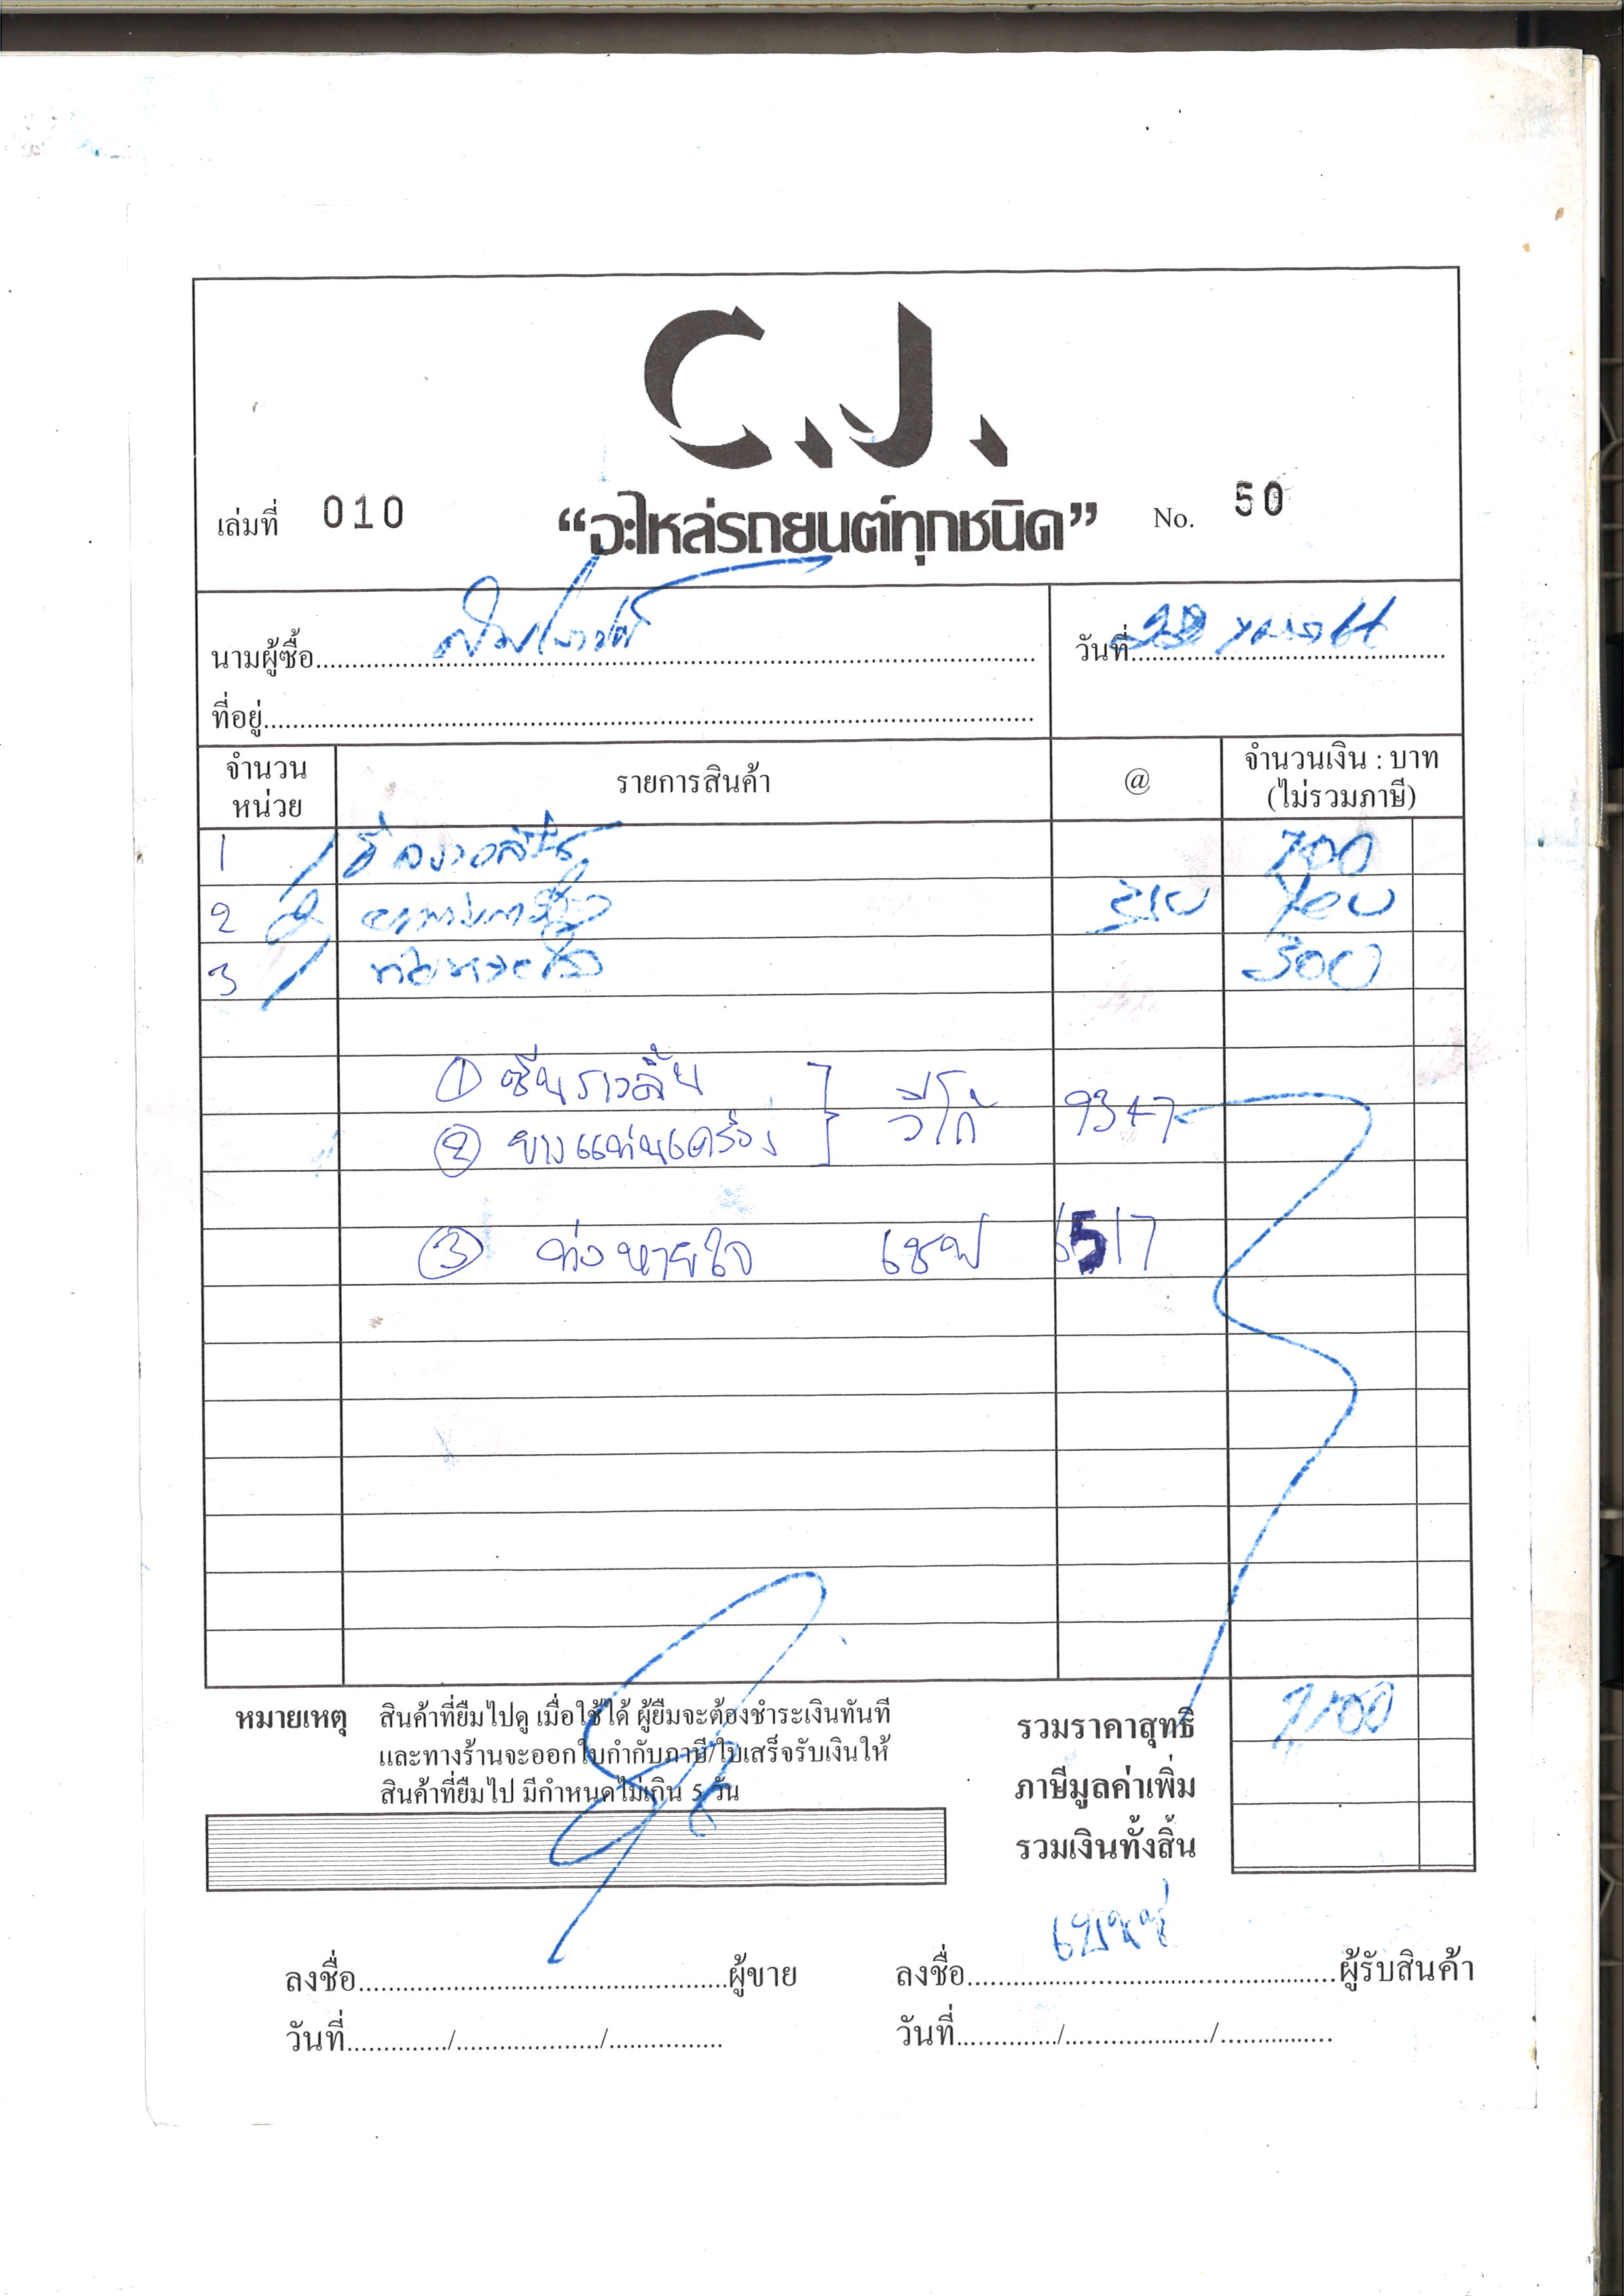 C.J.
เล่มที่ 010 “อะไหล่รถยนต์ทุกชนิด” No. 50
นามผู้ซื้อ วันที่
ที่อยู่
จำนวน หน่วย รายการสินค้า @ จำนวนเงิน : บาท (ไม่รวมภาษี)
1 700
2
3 300
① ซีนราวลิ้น วีโก้ 9347
② ยางแท่นเครื่อง
③ ท่อหายใจ เชฟ 6517
หมายเหตุ สินค้าที่ยืมไปดู เมื่อใช้ได้ ผู้ยืมจะต้องชำระเงินทันที
และทางร้านจะออกใบกำกับภาษี/ใบเสร็จรับเงินให้
สินค้าที่ยืมไป มีกำหนดไม่เกิน 5 วัน
รวมราคาสุทธิ
ภาษีมูลค่าเพิ่ม
รวมเงินทั้งสิ้น
ลงชื่อ ผู้ขาย ลงชื่อ ผู้รับสินค้า
วันที่ / / วันที่ / /